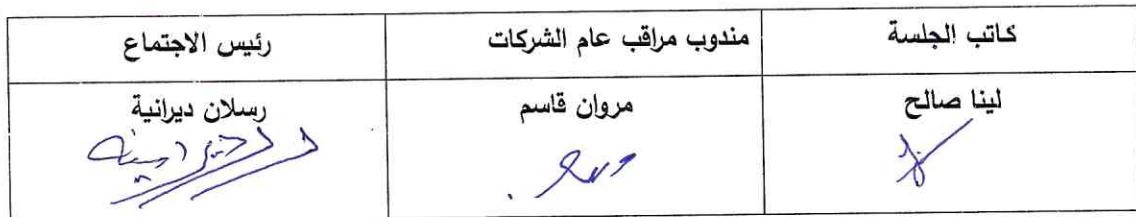 كاتب الجلسة
مندوب مراقب عام الشركات
رئيس الاجتماع
لينا صالح
مروان قاسم
رسلان ديرانية